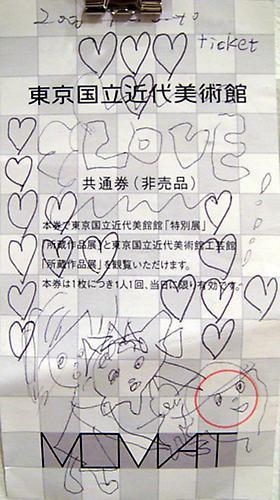 ticket
東京国立近代美術館
LOVE
共通券（非売品）
本券で東京国立近代美術館「特別展」
「所蔵作品展」と東京国立近代美術館工芸館
「所蔵作品展」を観覧いただけます。
本券は1枚につき1人1回、当日に限り有効です。
MOMAT